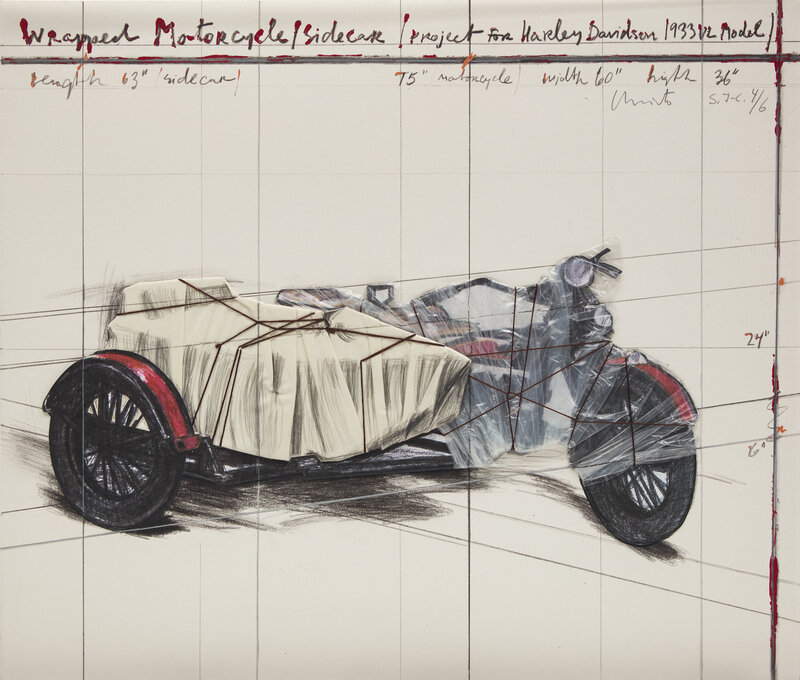 Wrapped Motorcycle/Sidecar (Project for Harley Davidson 1933 VL Model)
Length 63" (sidecar) 75" (motorcycle) width 60" hight 36"
Christo S.T-C. 4/6
24"
6"